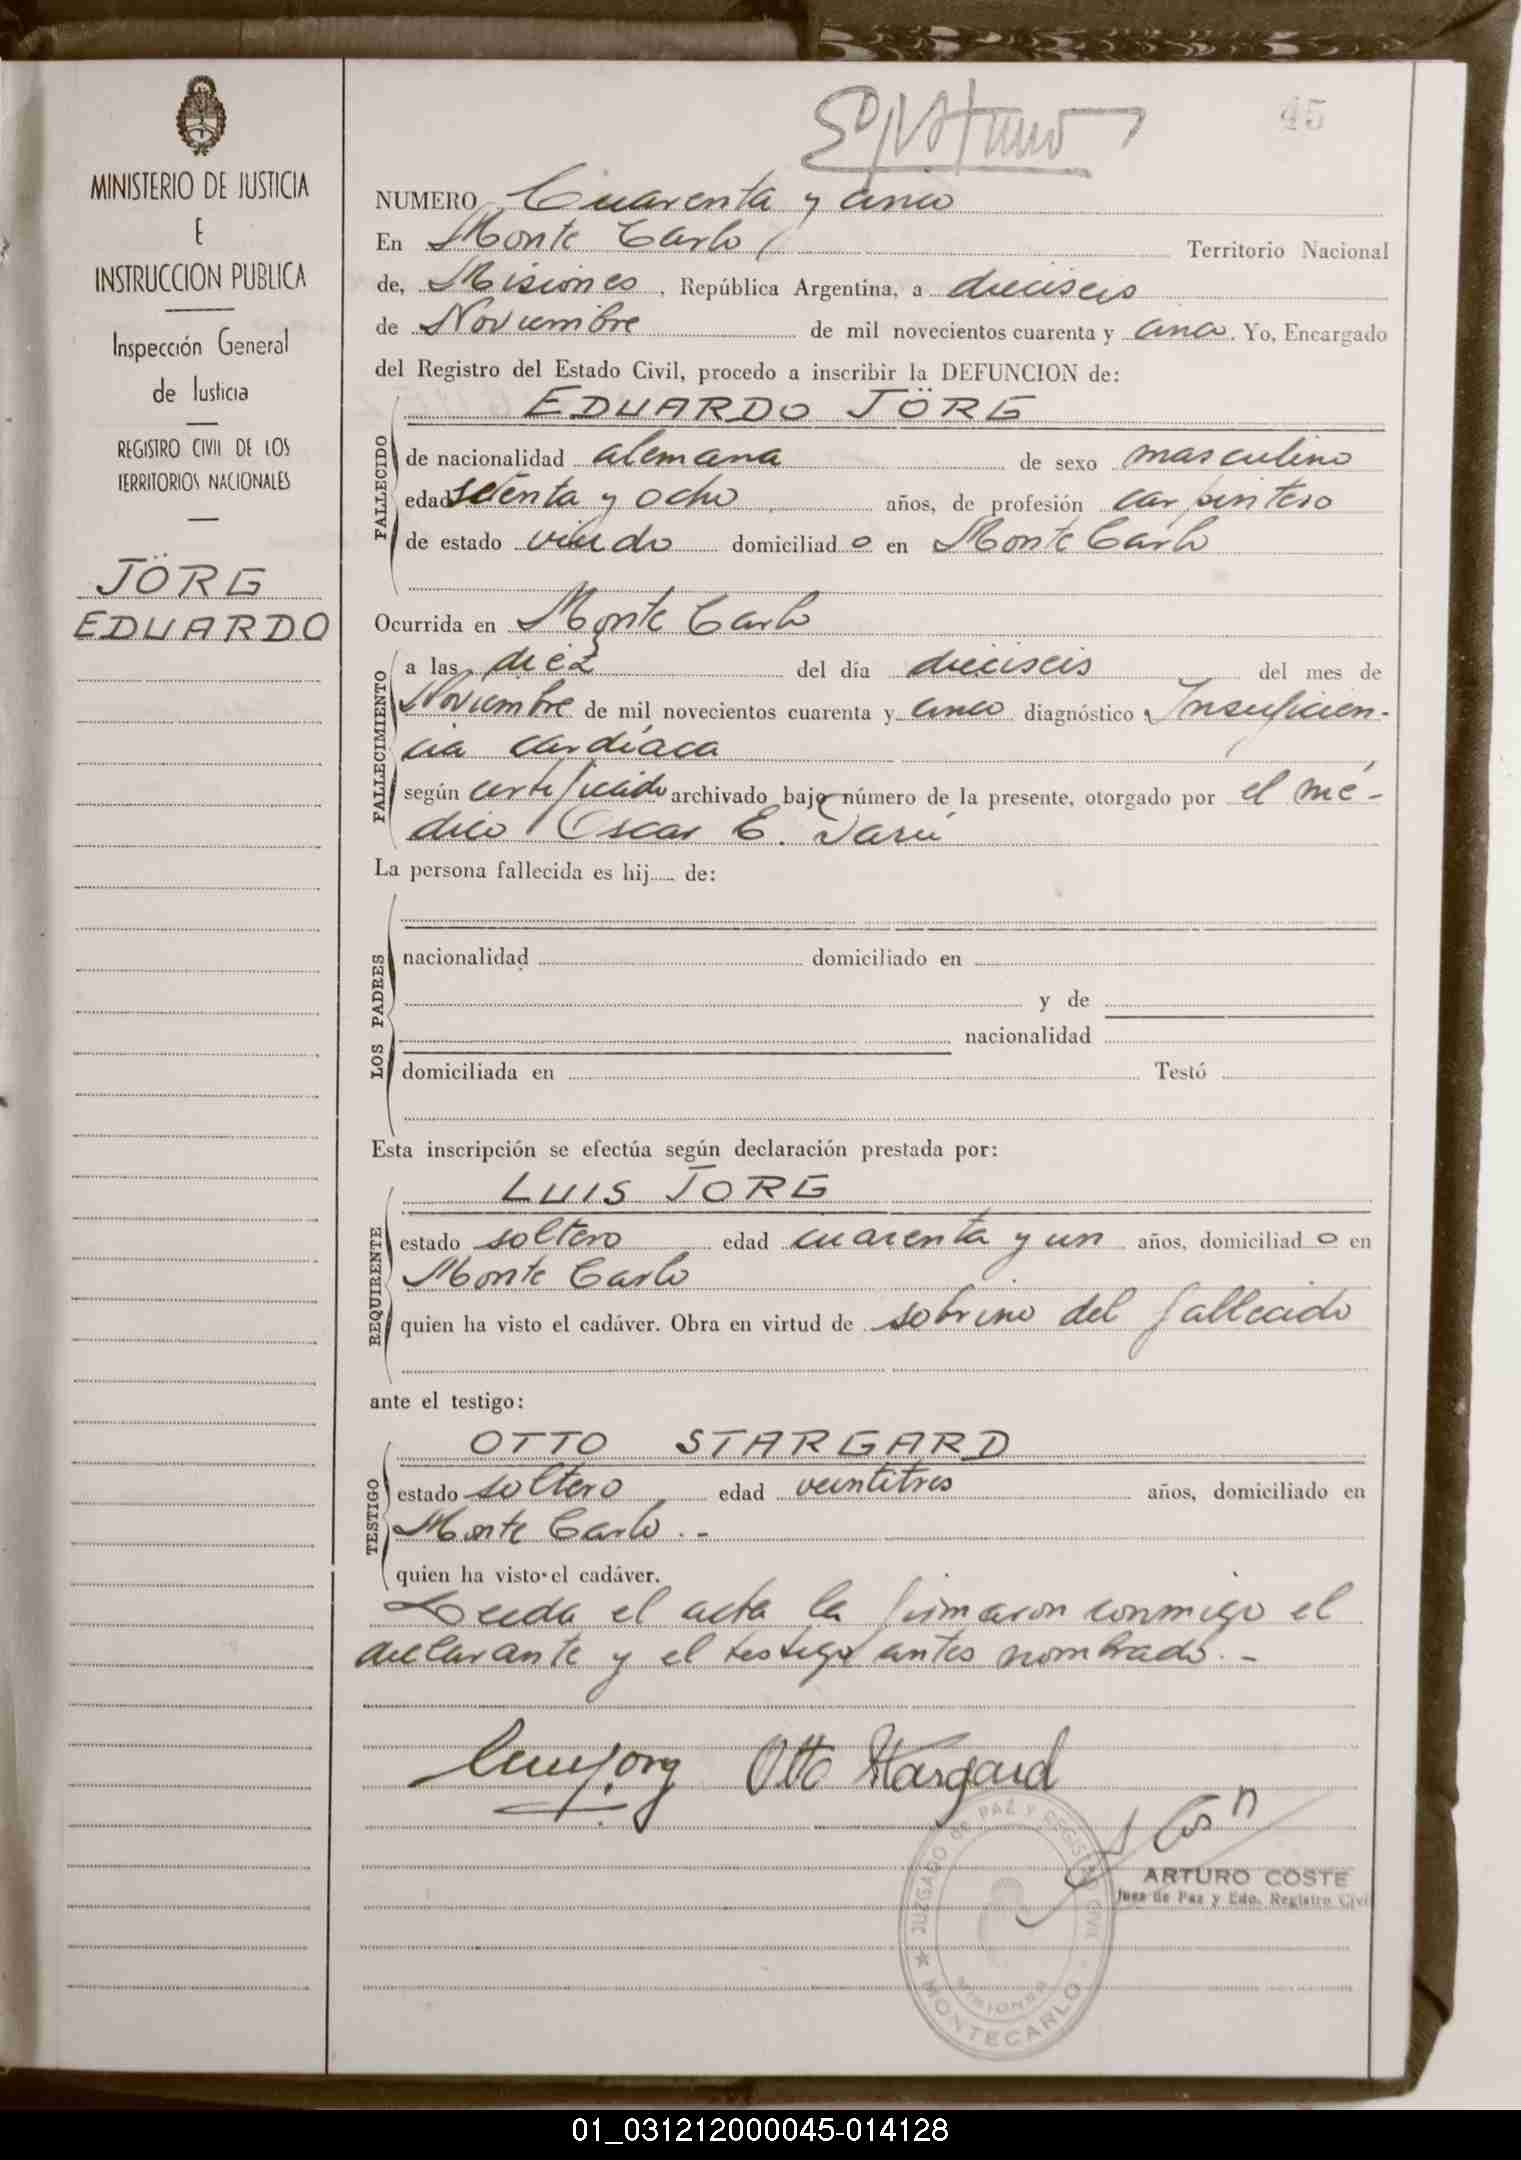 45
MINISTERIO DE JUSTICIA
E
INSTRUCCION PUBLICA
Inspección General
de Justicia
REGISTRO CIVIL DE LOS
TERRITORIOS NACIONALES
JÖRG
EDUARDO
NUMERO Cuarenta y cinco
En Monte Carlo Territorio Nacional
de, Misiones, República Argentina, a dieciseis
de Noviembre de mil novecientos cuarenta y cinco. Yo, Encargado
del Registro del Estado Civil, procedo a inscribir la DEFUNCION de:
EDUARDO JÖRG
FALLECIDO
de nacionalidad alemana de sexo masculino
edad setenta y ocho años, de profesión carpintero
de estado viudo domiciliado en Monte Carlo
Ocurrida en Monte Carlo
FALLECIMIENTO
a las diez del día dieciseis del mes de
Noviembre de mil novecientos cuarenta y cinco diagnóstico Insuficien-
cia cardíaca
según certificado archivado bajo número de la presente, otorgado por el mé-
dico Oscar E.
La persona fallecida es hij..... de:
LOS PADRES
nacionalidad domiciliado en
y de
nacionalidad
domiciliada en Testó
Esta inscripción se efectúa según declaración prestada por:
LUIS JORG
REQUIRENTE
estado soltero edad cuarenta y un años, domiciliado en
Monte Carlo
quien ha visto el cadáver. Obra en virtud de sobrino del fallecido
ante el testigo:
OTTO STARGARD
TESTIGO
estado soltero edad veintitres años, domiciliado en
Monte Carlo.-
quien ha visto el cadáver.
Leida el acta la firmaron conmigo el
declarante y el testigo antes nombrado.-
Otto Stargard
ARTURO COSTE
Juez de Paz y Edo. Registro Civil
JUZGADO de PAZ Y REGISTRO CIVIL
MISIONES
MONTECARLO
01_031212000045-014128